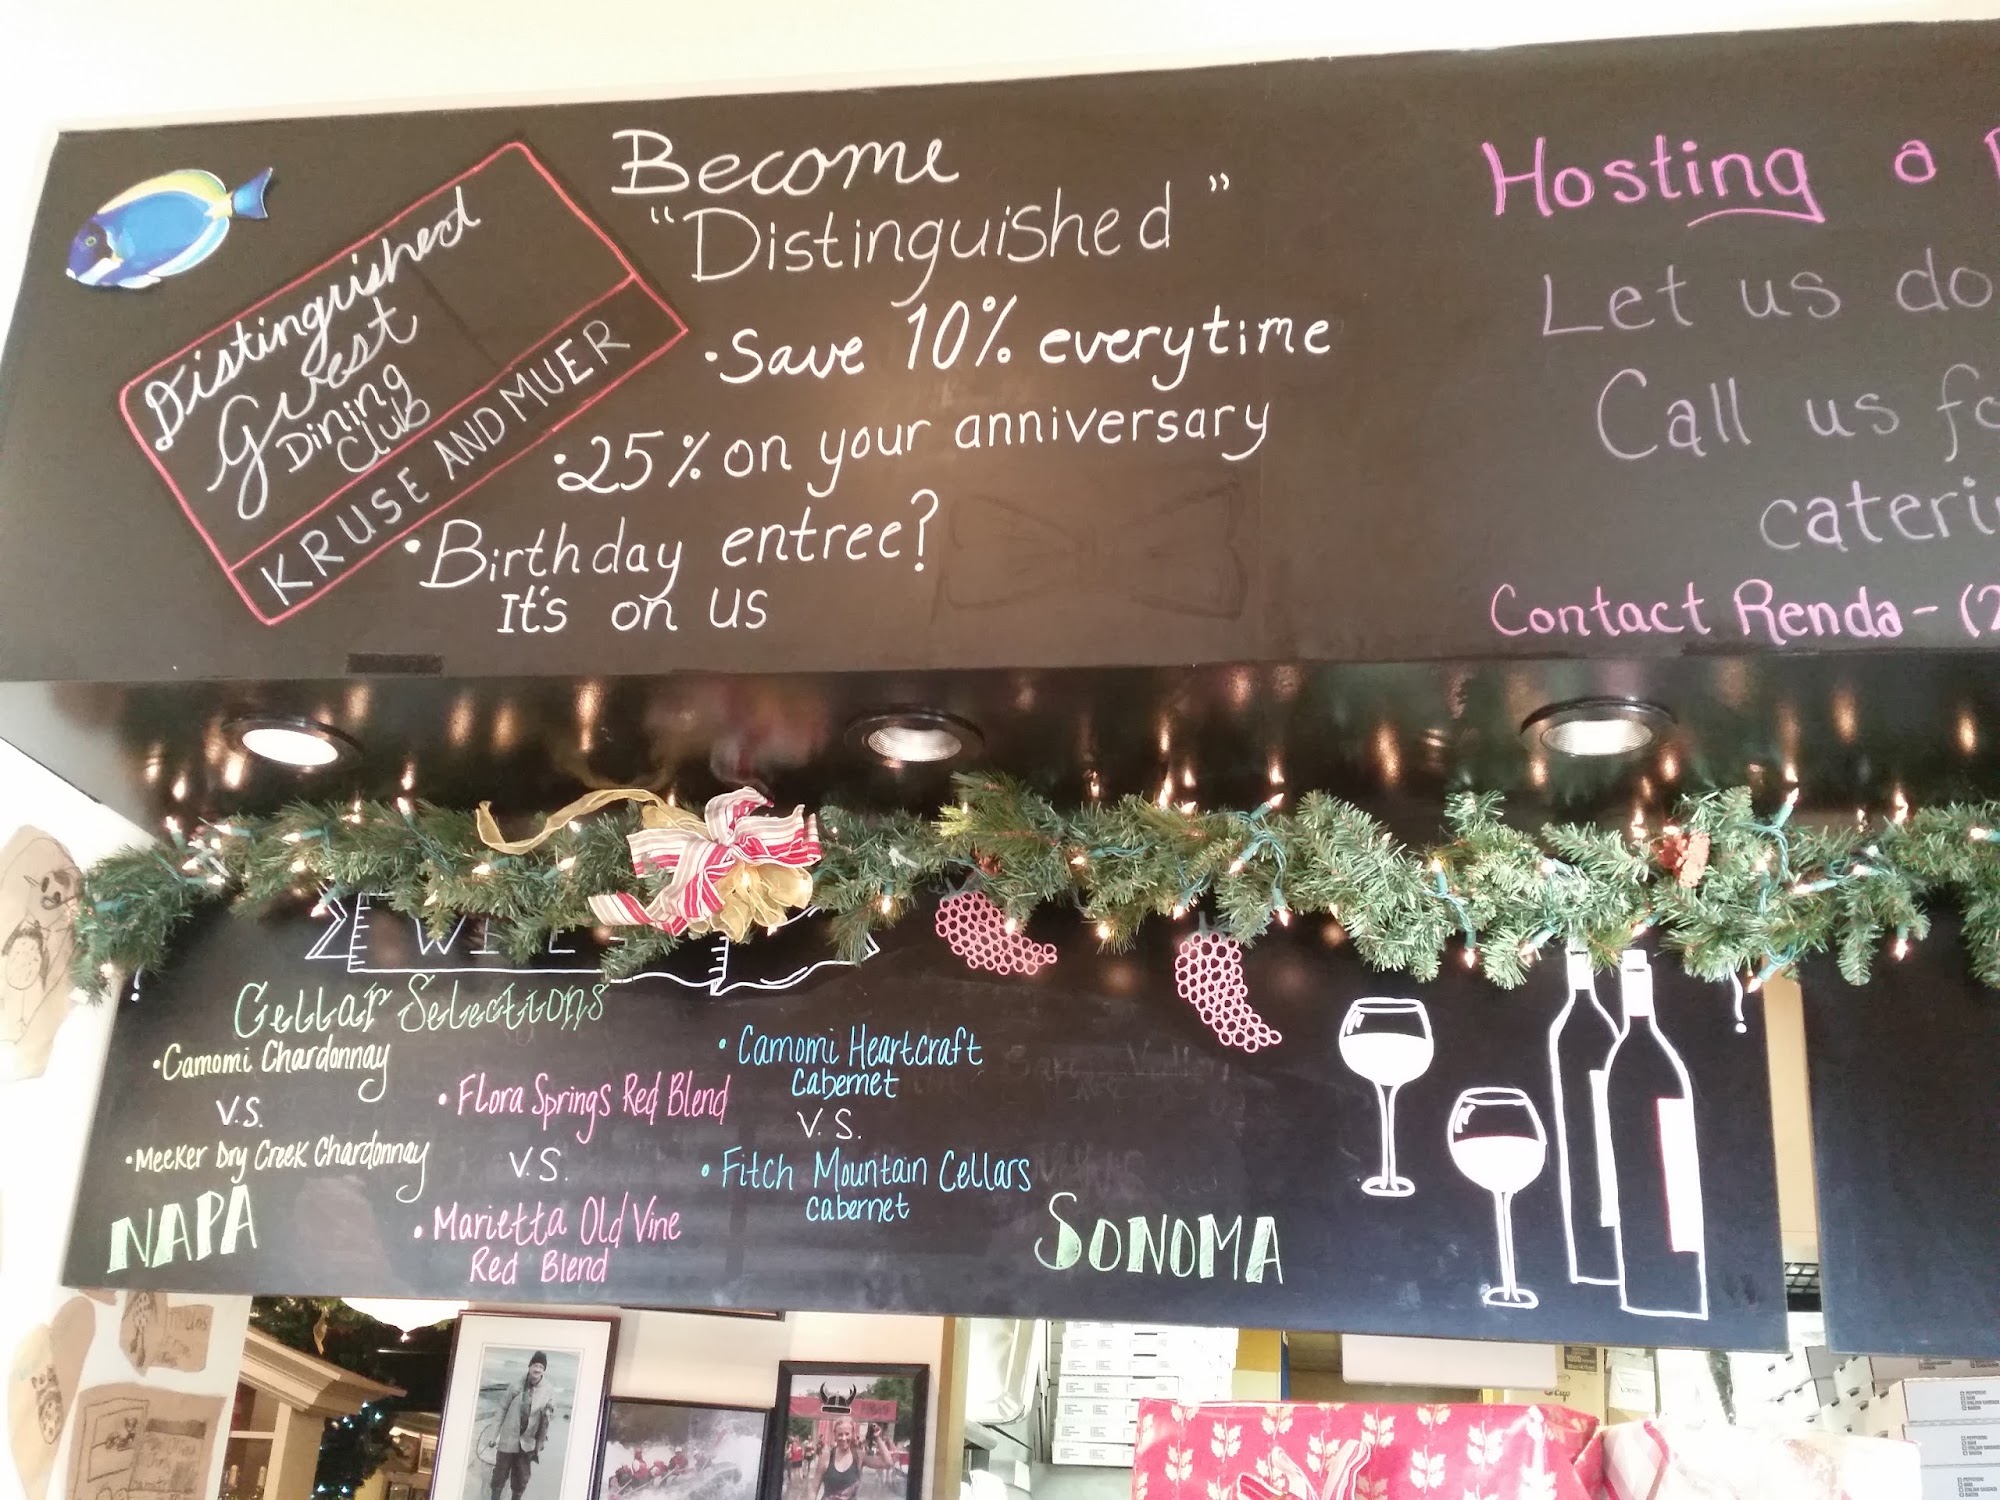 Distinguished
Guest
Dining
Club
KRUSE AND MUER
Become
"Distinguished"
• Save 10% everytime
• 25% on your anniversary
• Birthday entree?
It's on us
Hosting a
Let us do
Call us
Contact Renda - (2
Cellar Selections
• Camomi Chardonnay
V.S.
• Meeker Dry Creek Chardonnay
• Flora Springs Red Blend
V.S.
• Marietta Old Vine
Red Blend
• Camomi Heartcraft
Cabernet
V.S.
• Fitch Mountain Cellars
Cabernet
NAPA
SONOMA